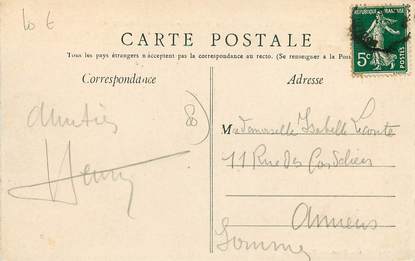 10 €
CARTE POSTALE
Tous les pays étrangers n'acceptent pas la correspondance au recto. (Se renseigner à la Poste
Correspondance
Adresse
5c
POSTES
Amitiés
80
Henry
Mademoiselle Isabelle Lecomte
11 Rue des Cordeliers
Amiens
Somme